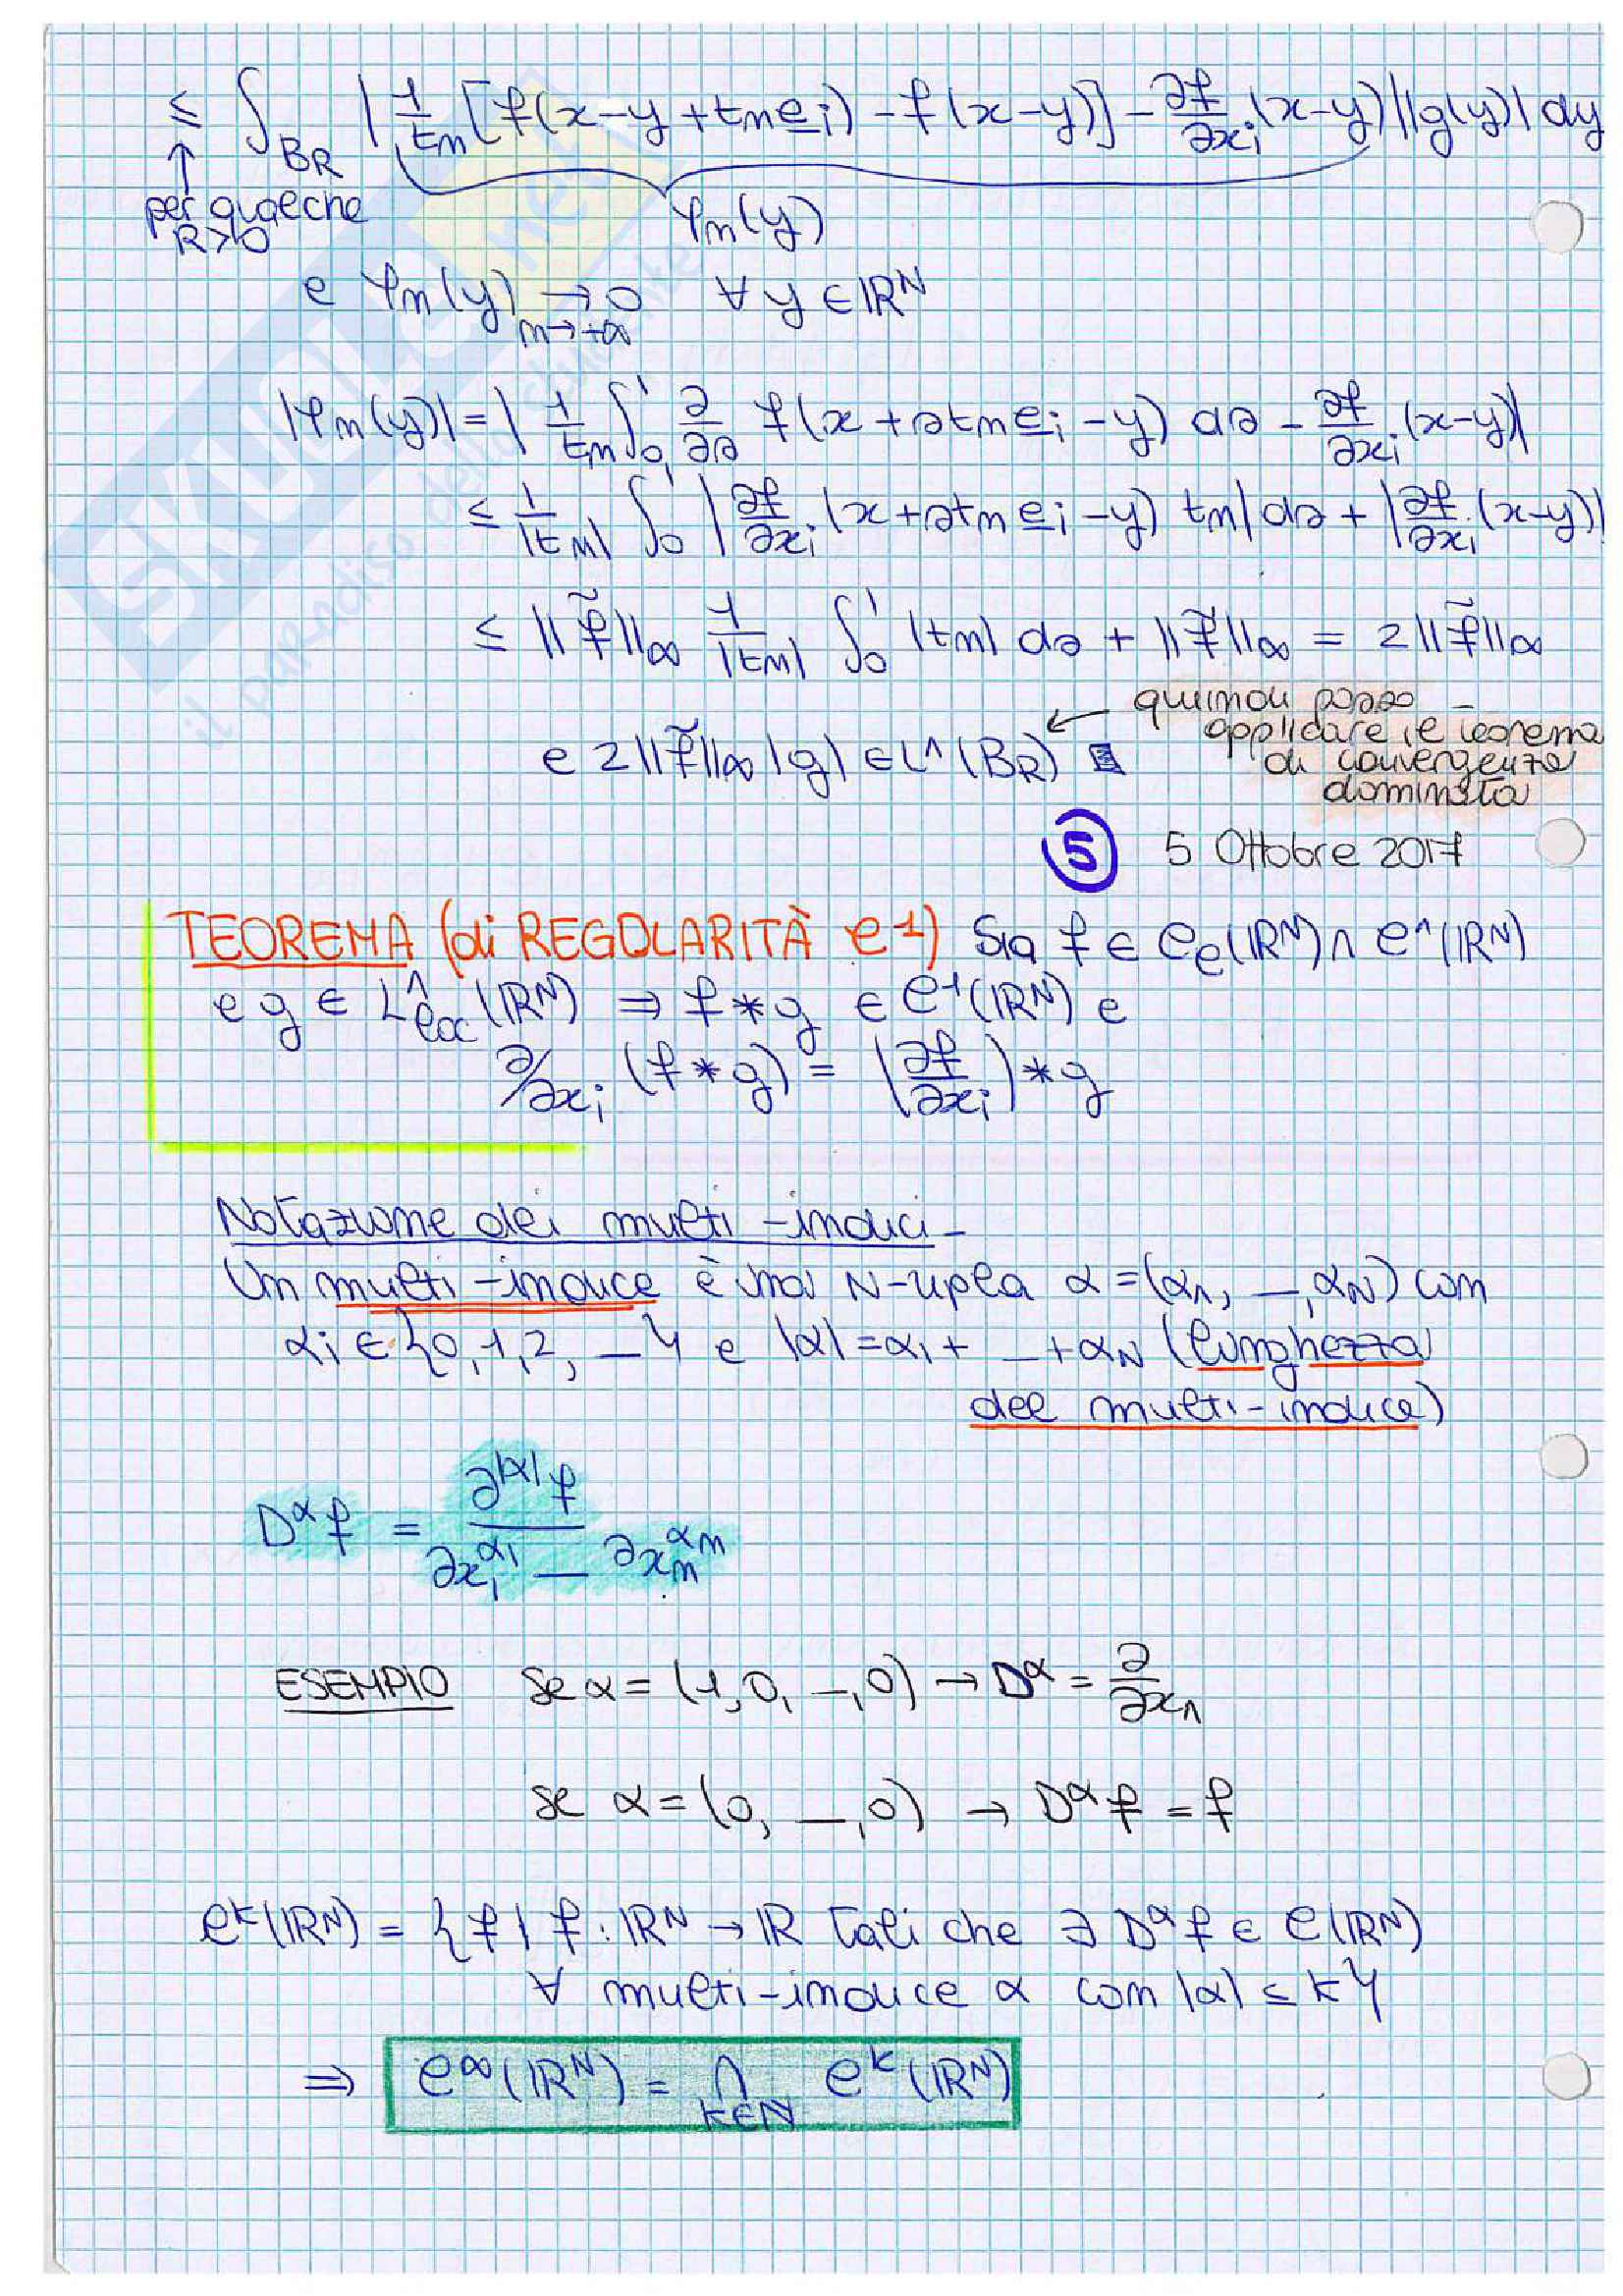 ≤ ∫_{B_R} |1/t_n [f(x-y+t_n e_i) - f(x-y)] - ∂f/∂x_i (x-y)| |g(y)| dy
↑
per qualche
R>0
φ_n(y)
e φ_n(y) → 0 ∀ y ∈ ℝ^N
n→+∞
|φ_n(y)| = |1/t_n ∫_0^1 ∂/∂s f(x+st_n e_i - y) ds - ∂f/∂x_i (x-y)|
≤ 1/|t_n| ∫_0^1 |∂f/∂x_i (x+st_n e_i - y) t_n| ds + |∂f/∂x_i (x-y)|
≤ ||f̃||_∞ 1/|t_n| ∫_0^1 |t_n| ds + ||f̃||_∞ = 2||f̃||_∞
quindi posso
applicare il teorema
di convergenza
dominata
e 2||f̃||_∞ |g| ∈ L^1(B_R) ←
5 5 Ottobre 2017
TEOREMA (di REGOLARITÀ C^1) Sia f ∈ C_c(ℝ^N) ∩ C^1(ℝ^N)
e g ∈ L^1_loc(ℝ^N) ⇒ f * g ∈ C^1(ℝ^N) e
∂/∂x_i (f * g) = (∂f/∂x_i) * g
Notazione dei multi-indici -
Un multi-indice è una N-upla α = (α_1, —, α_N) con
α_i ∈ {0, 1, 2, —} e |α| = α_1 + — + α_N (lunghezza
del multi-indice)
D^α f = ∂^{|α|} f / ∂x_1^{α_1} — ∂x_n^{α_n}
ESEMPIO Se α = (1, 0, —, 0) → D^α = ∂/∂x_1
se α = (0, —, 0) → D^α f = f
C^k(ℝ^N) = {f | f : ℝ^N → ℝ tali che ∃ D^α f ∈ C(ℝ^N)
∀ multi-indice α con |α| ≤ k}
⇒ C^∞(ℝ^N) = ∩_{k∈ℕ} C^k(ℝ^N)
SKUOLA.net
il paradiso dello studente